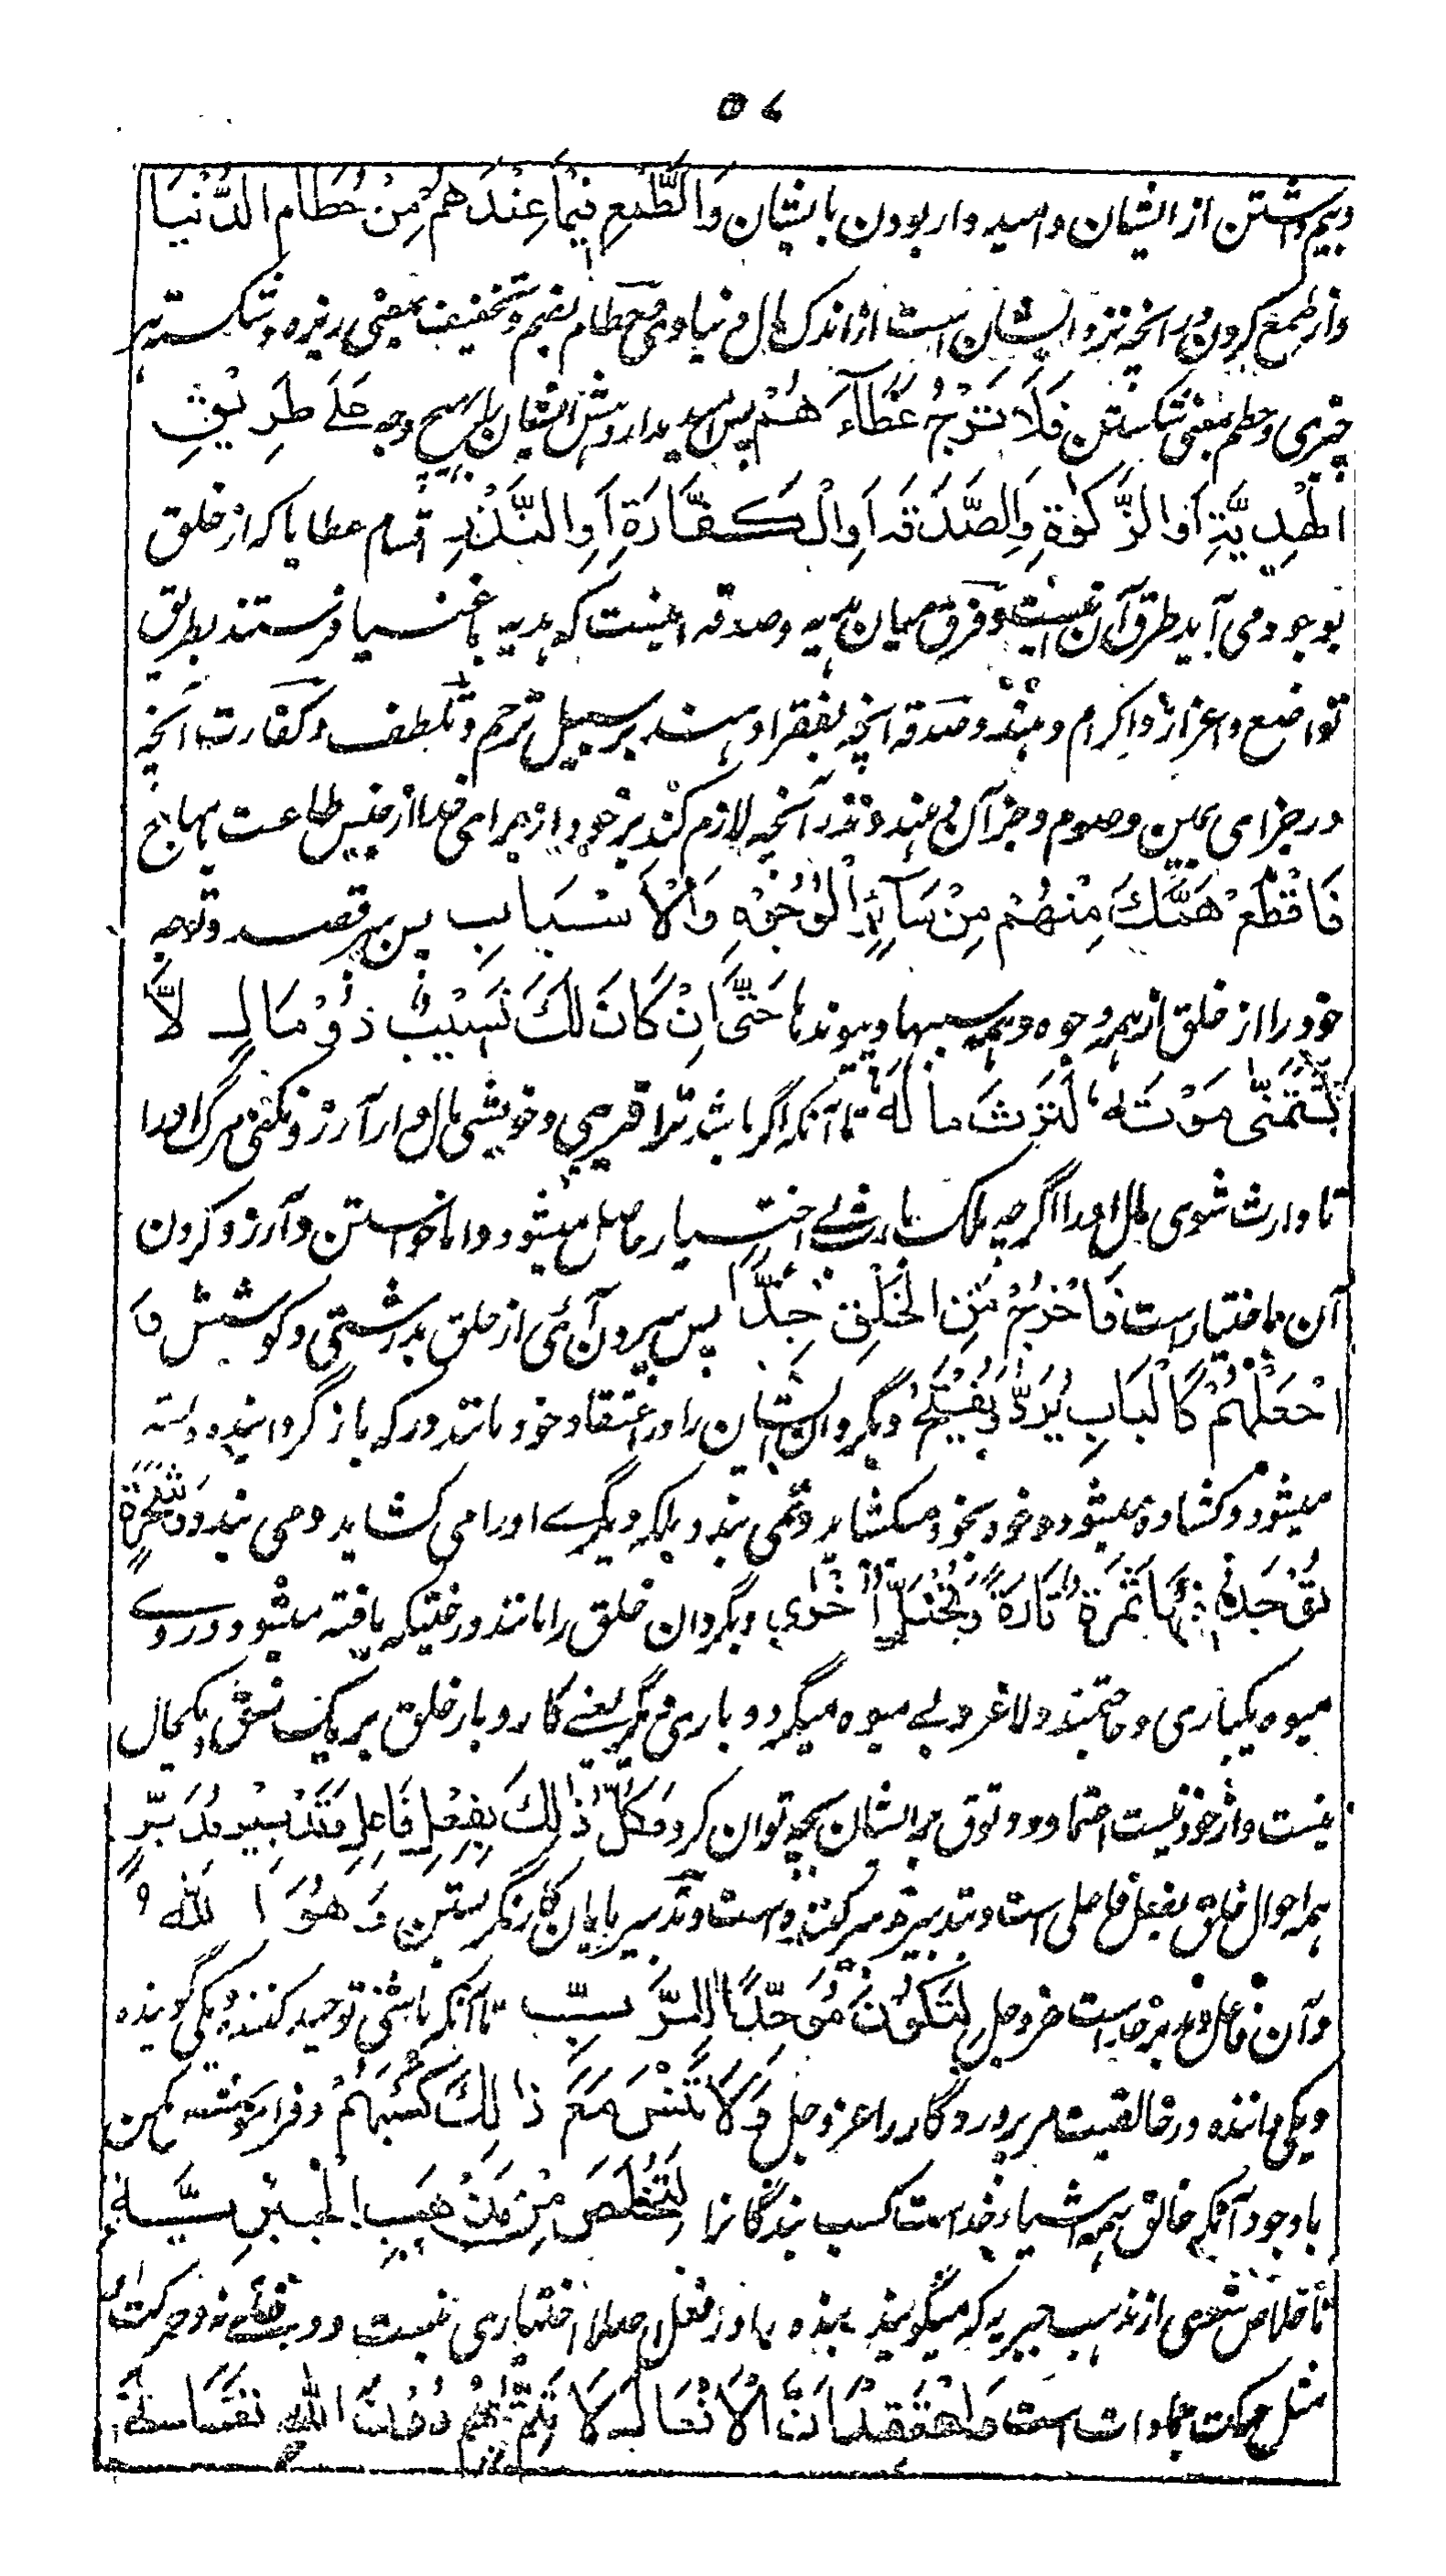 ۵۷
وبیم داشتن از ایشان و امیدوار بودن بایشان وَالطَّمَعِ فِیْمَا عِنْدَهُمْ مِنْ حُطَامِ الدُّنْیَا
واز طمع کردن در آنچه نزد ایشان است از اندک مال دنیاوی حطام بضم و تخفیف بمعنی ریزه و شکسته هر
چیزی و حطم بمعنی شکستن فَلَا تَرْجُ عَطَآءَهُمْ پس امید مدار دهش ایشان را بهیچ وجه عَلٰے طَرِیْقِ
الْهَدِیَّةِ اَوِ الزَّکٰوةِ وَالصَّدَقَةِ اَوِ الْکَفَّارَةِ اَوِ النَّذْرِ اقسام عطایا که از خلق
بوجود می آید طرق آن نیست و فرق میان هدیه و صدقه اینست که هدیه باغنیا فرستند بطریق
تواضع و اعزاز و اکرام و صدقه آنچه بفقرا دهند بر سبیل ترحم و تلطف و کفارت آنچه
در جزای یمین و صوم و جز آن دهند و نذر آنچه لازم کند بر خود از برای خدا از جنس طاعت
فَاقْطَعْ هَمَّكَ مِنْهُمْ مِنْ سَآئِرِ الْوُجُوْهِ وَالْاَسْبَابِ پس ببر قصد و توجه
خود را از خلق از همه وجوه و همه سببها و پیوندها حَتّٰی اِنْ کَانَ لَكَ نَسِیْبٌ ذُوْ مَالٍ لَا
تَتَمَنّٰی مَوْتَهٗ لِتَرِثَ مَالَهٗ تا آنکه اگر باشد ترا قریبی و خویشی مال دار آرزو نکنی مرگ او را
تا وارث شوی مال او را اگرچه ملک بارث بے اختیار حاصل میشود و اما خواستن و آرزو کردن
آن باختیار است فَاخْرُجْ مِنَ الْخَلْقِ جِدًّا پس بیرون آئی از خلق بدرستی و کوشش وَ
اجْعَلْهُمْ کَالْبَابِ یُرَدُّ وَیُفْتَحُ و بگردان ایشان را در اعتقاد خود مانند در که باز گردانیده و بسته
میشود و کشاده میشود و خود بخود نمیکشاید و نمی بندد بلکه دیگرے او را می کشاید و می بندد وَشَجَرَةٍ
تُوْجَدُ فِیْهَا ثَمَرَةٌ تَارَةً وَتَخْتَلُّ اُخْرٰی و بگردان خلق را مانند درختیکه یافته میشود در وے
میوه یکباری و لاغر و بے میوه میگردد باری دیگر یعنے کار و بار خلق بر یک نسق و یکحال
نیست و از خود نیست اعتماد و وثوق بر ایشان چه توان کرد وَکُلُّ ذٰلِكَ بِفِعْلِ فَاعِلٍ وَتَدْبِیْرِ مُدَبِّرٍ
همه احوال خلق بفعل فاعلی است و تدبیر مدبر کننده است و تدبیر پایان کار نگریستن وَهُوَ اللّٰهُ
و آن فاعل و مدبر خداست عز و جل لِتَکُوْنَ مُوَحِّدًا لِلرَّبِّ تا آنکه باشی توحید کننده و یکی گوینده
و یکی داننده در خالقیت مر پروردگار را عز و جل وَلَا تَنْسَ مَعَ ذٰلِكَ کَسْبَهُمْ و فراموش مکن
باوجود آنکه خالق همه اشیاء خداست کسب بندگانرا لِتَخْلُصَ مِنْ مَذْهَبِ الْجَبْرِیَّةِ
تا خلاص شوی از مذهب جبریه که میگویند بنده را در فعل اصلا اختیاری نیست و حرکت او
مثل حرکت جمادات است وَاعْتَقِدْ اَنَّ الْاَفْعَالَ لَا یَتِمُّ بِهِمْ دُوْنَ اللّٰهِ تَعَالٰی